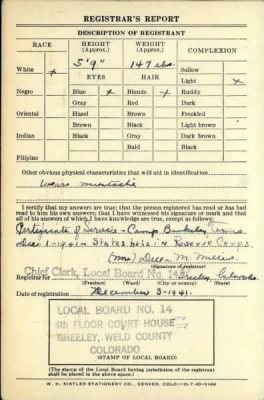 REGISTRAR'S REPORT
DESCRIPTION OF REGISTRANT
RACE HEIGHT (Approx.) WEIGHT (Approx.) COMPLEXION
5'9" 147 lbs. Sallow
White x EYES HAIR Light x
Negro Blue x Blonde x Ruddy
Gray Red Dark
Oriental Hazel Brown Freckled
Brown Black Light brown
Indian Black Gray Dark brown
Bald Black
Filipino
Other obvious physical characteristics that will aid in identification
Wears mustache
I certify that my answers are true; that the person registered has read or has had
read to him his own answers; that I have witnessed his signature or mark and that
all of his answers of which I have knowledge are true, except as follows:
Certificate of Service - Camp Barkeley Texas
Dec 1-1941 - States he is in Reserve Corps.
(Mrs) M.
(Signature of registrar)
Chief Clerk, Local Board No. 14
Registrar for Greeley, Colorado.
(Precinct) (Ward) (City or county) (State)
Date of registration December 3-1941.
LOCAL BOARD NO. 14
4th FLOOR COURT HOUSE
GREELEY, WELD COUNTY
COLORADO
(STAMP OF LOCAL BOARD)
(The stamp of the Local Board having jurisdiction of the registrant
shall be placed in the above space.)
W. H. KISTLER STATIONERY CO., DENVER, COLO.